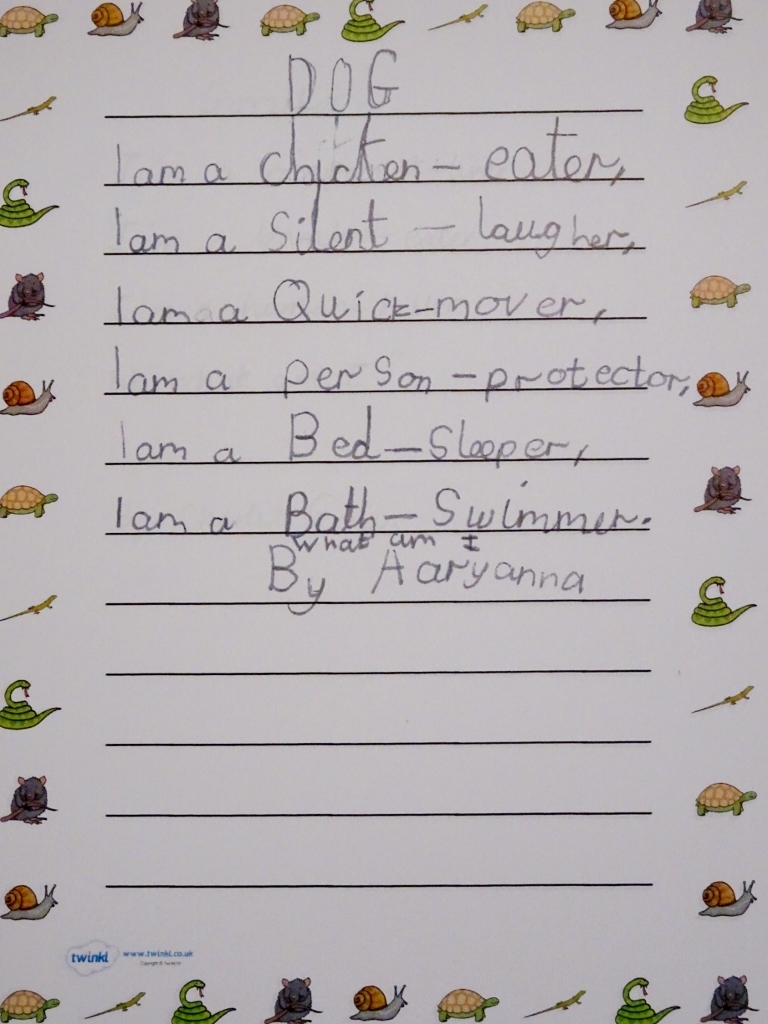 DOG
I am a chicken - eater,
I am a Silent - laugher,
I am a Quick-mover,
I am a person - protector,
I am a Bed - Sleeper,
I am a Bath - Swimmer.
what am I
By Aaryanna
twinkl www.twinkl.co.uk